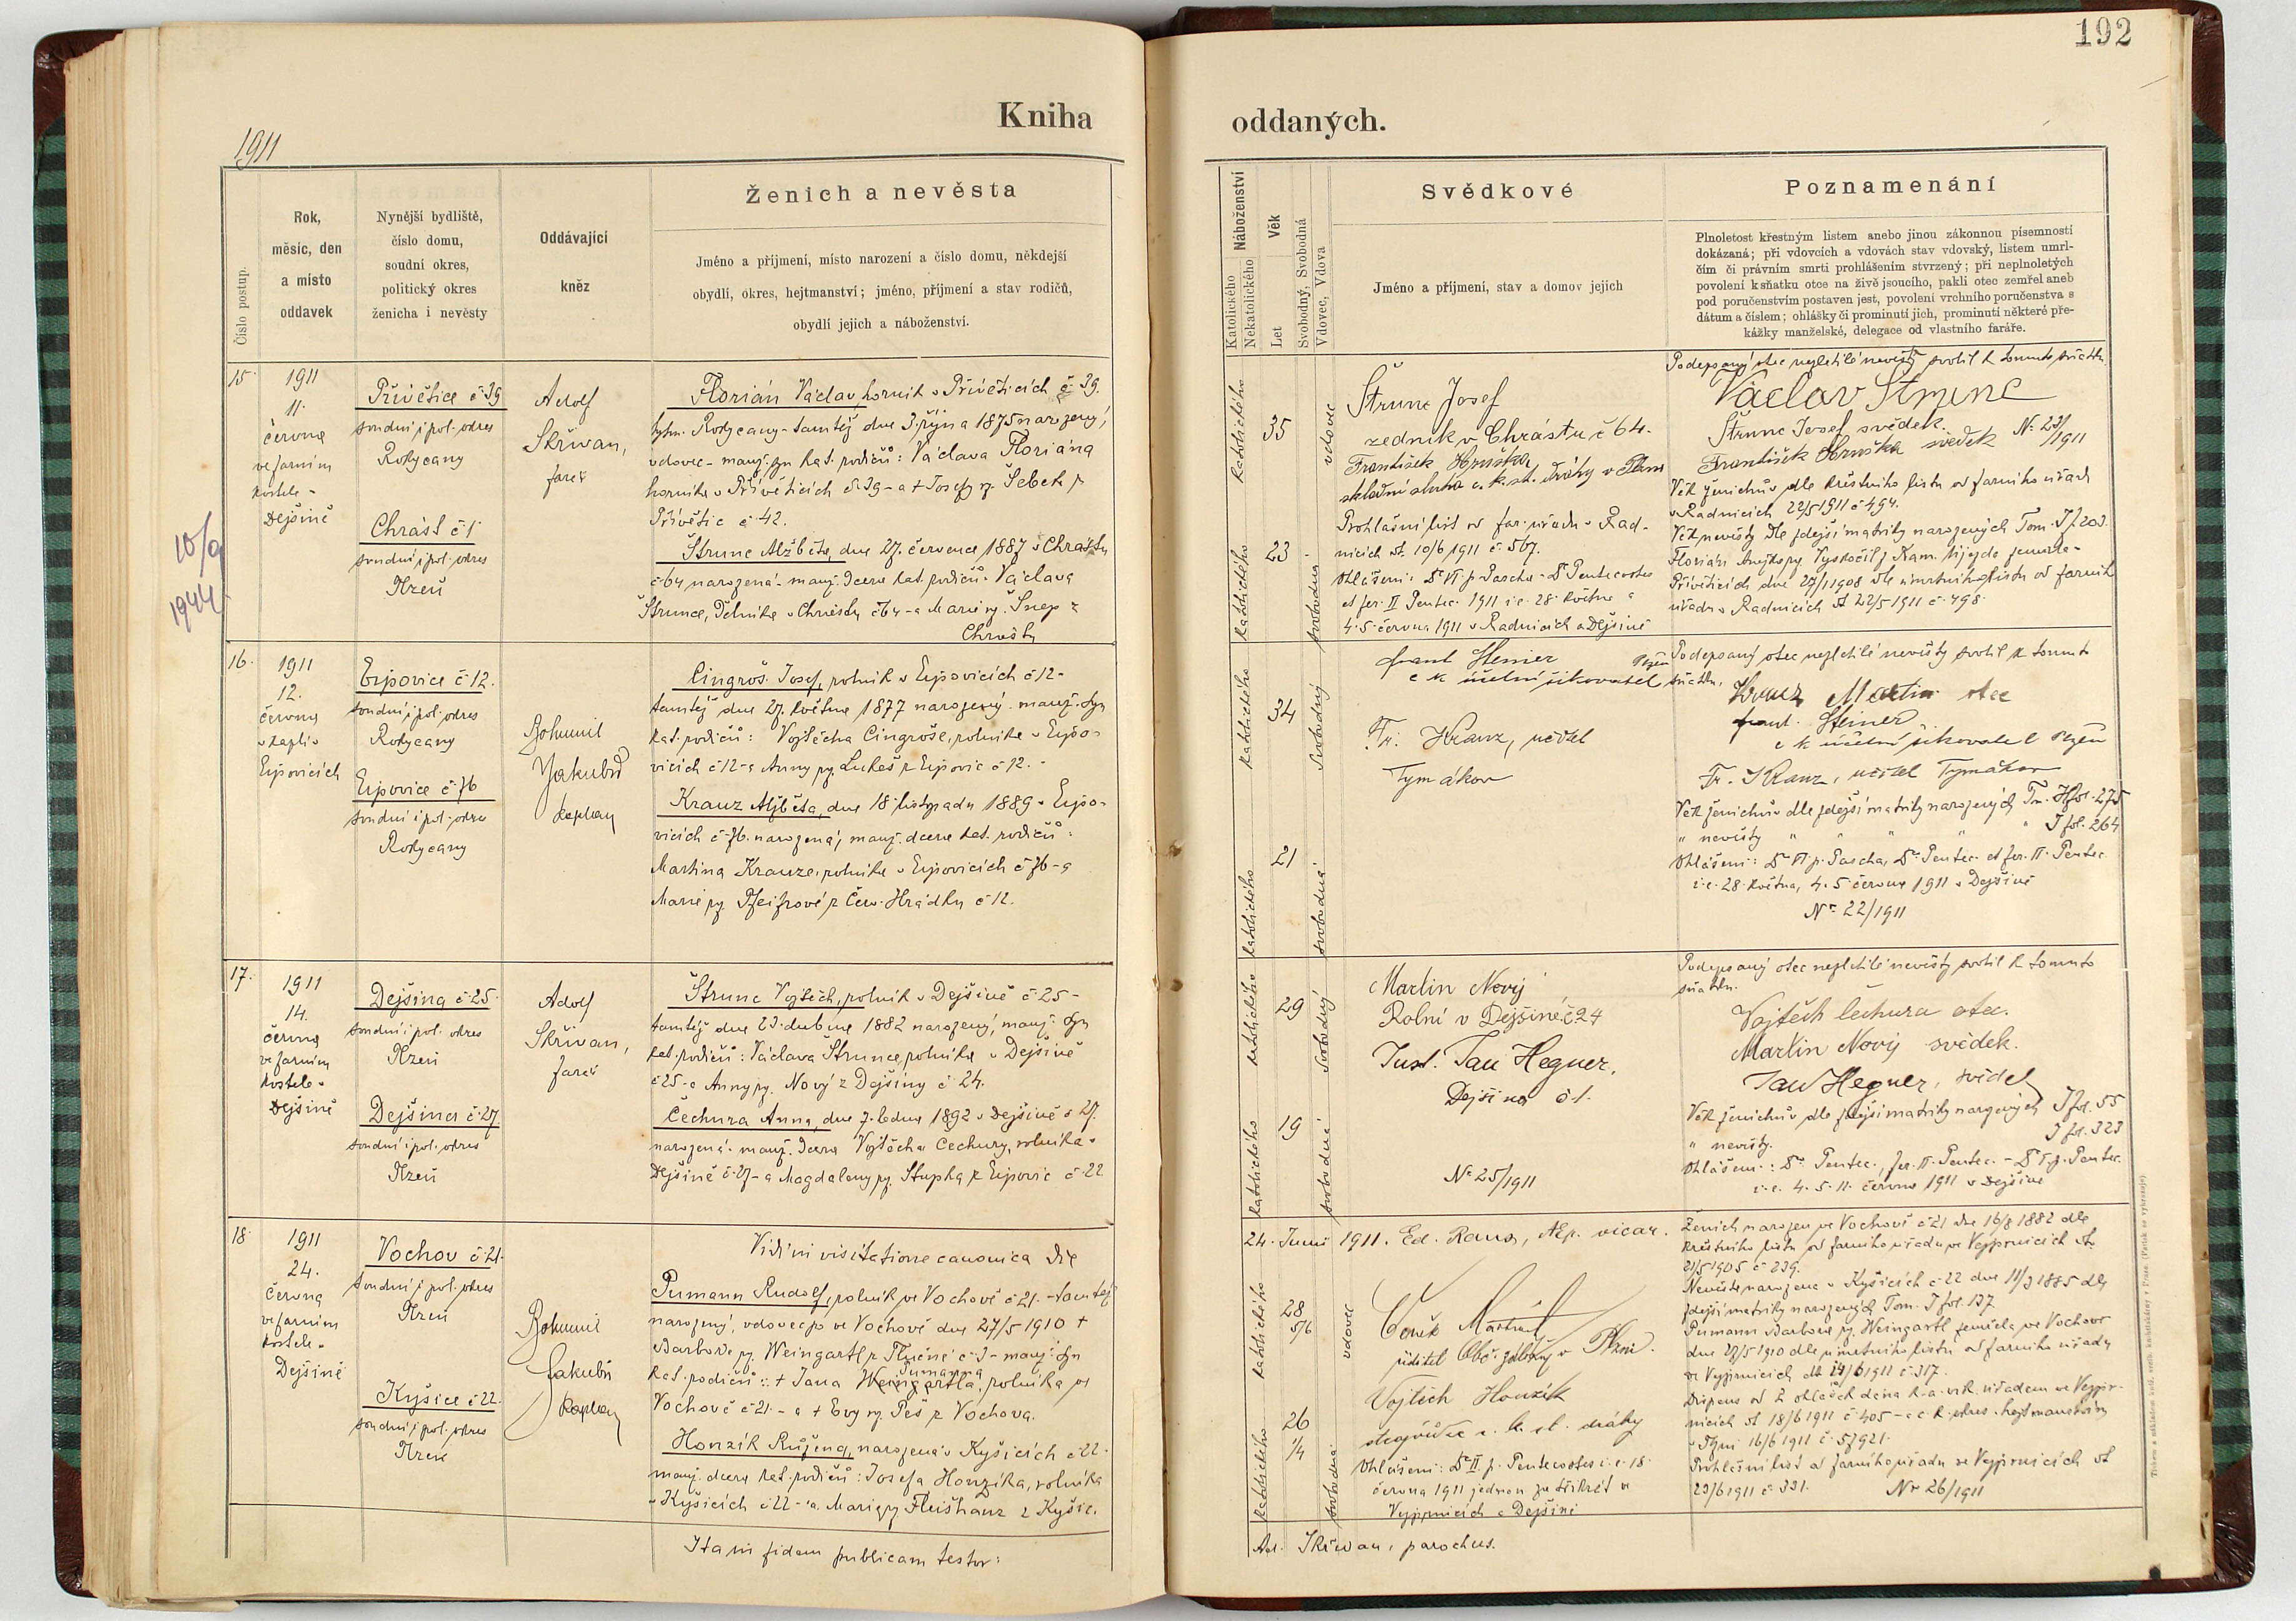 192
Kniha
oddaných.
1911
Číslo postup.
Rok,
měsíc, den
a místo
oddavek
Nynější bydliště,
číslo domu,
soudní okres,
politický okres
ženicha i nevěsty
Oddávající
kněz
Ženich a nevěsta
Jméno a příjmení, místo narození a číslo domu, někdejší
obydlí, okres, hejtmanství; jméno, příjmení a stav rodičů,
obydlí jejich a náboženství.
Katolického
Nekatolického
Náboženství
Věk
Let
Svobodný, Svobodná
Vdovec, Vdova
Svědkové
Jméno a příjmení, stav a domov jejich
Poznamenání
Plnoletost křestným listem anebo jinou zákonnou písemností
dokázaná; při vdovcích a vdovách stav vdovský, listem umrl-
čím či právním smrti prohlášením stvrzený; při neplnoletých
povolení k sňatku otce na živě jsoucího, pakli otec zemřel aneb
pod poručenstvím postaven jest, povolení vrchního poručenstva s
dátum a číslem; ohlášky či prominutí jich, prominutí některé pře-
kážky manželské, delegace od vlastního faráře.
15.
1911
11.
června
ve farním
kostele v
Dejšině
10/9
1944
Přívětice č 39
soudní i pol. okres
Rokycany
Chrást č 1
soudní i pol. okres
Plzeň
Adolf
Skřivan,
farář
Florián Václav, horník v Přívěticích č 39.
hejtm. Rokycany - tamtéž dne 3. října 1875 narozený,
vdovec - manž. syn kat. rodičů: Václava Floriána
horníka v Přívěticích č 39 - a + Josefy r. Šebek z
Přívětic č 42.
Štrunc Alžběta, dne 27. července 1887 v Chrástu
č 64 narozená - manž. dcera kat. rodičů: Václava
Štrunce, v Chrástu č 64 - a Marie r. Šnep z
Chrástu
katolického
35
vdovec
katolického
23
svobodná
Štrunc Josef
zedník v Chrástu č 64.
František Hruška
skladní sluha c. k. st. dráhy v Plzni
Prohlášní list od far. úřadu v Rad-
nicích dt. 10/6 1911 č 567.
Ohlášení: Dca VI p. Pascha - Dca Pentecostes
et fer. II Pentec. 1911 i. e. 28. května a
4. 5. června 1911 v Radnicích a Dejšině
Podepsaný otec nezletilé nevěsty svolil k tomuto sňatku.
Václav Štrunc
Štrunc Josef svědek.
František Hruška svědek No 23/1911
Věk ženichův dle křestního listu od farního úřadu
v Radnicích 22/5 1911 č 494.
Věk nevěsty dle zdejší matriky narozených Tom. I f. 203.
Přívěticích, dne 27/1 1908 dle úmrtního listu od farního
úřadu v Radnicích dt 22/5 1911 č. 498.
16.
1911
12.
června
v kapli v
Ejpovicích
Ejpovice č 12.
soudní i pol. okres
Rokycany
Ejpovice č 76
soudní i pol. okres
Rokycany
Bohumil
Jakubů
kaplan
Cingroš Josef, rolník v Ejpovicích č 12 -
tamtéž dne 27. května 1877 narozený. manž. syn
kat. rodičů: Vojtěcha Cingroše, rolníka v Ejpo-
vicích č 12 - a Anny r. Lukeš z Ejpovic č 12. -
Krauz Alžběta, dne 18. listopadu 1889 v Ejpo-
vicích č 76. narozená, manž. dcera kat. rodičů:
Martina Krauze, rolníka v Ejpovicích č 76 - a
Marie r. Pfeifrové z Červ. Hrádku č 12.
katolického
34
svobodný
katolického
21
svobodná
Frant Steiner Plzeň
c k účetní šikovatel
Fr. Krauz, učitel
Tymákov
Podepsaný otec nezletilé nevěsty svolil k tomuto
sňatku.
Krauz Martin otec
Frant. Steiner
c k účetní šikovatel Plzeň
Fr. Krauz, učitel Tymákov
Věk ženichův dle zdejší matriky narozených Tom. H fol. 275
" nevěsty " " " " " I fol. 264
Ohlášení: Dca VI p. Pascha, Dca Pentec. et fer. II. Pentec.
i. e. 28. května, 4. 5. června 1911 v Dejšině
No 22/1911
17.
1911
14.
června
ve farním
kostele v
Dejšině
Dejšina č 25.
soudní i pol. okres
Plzeň
Dejšina č 27.
soudní i pol. okres
Plzeň
Adolf
Skřivan,
farář
Štrunc Vojtěch, rolník v Dejšině č 25 -
tamtéž dne 23. dubna 1882 narozený, manž. syn
kat. rodičů: Václava Štrunce, rolníka v Dejšině
č 25 - a Anny r. Nový z Dejšiny č 24.
Čechura Anna, dne 7. ledna 1892 v Dejšině č 27.
narozená - manž. dcera Vojtěcha Čechury, rolníka v
Dejšině č 27 - a Magdaleny r. Stupka z Ejpovic č 22
katolického
29
svobodný
katolického
19
svobodná
Martin Nový
Rolní v Dejšině č 24
Just. Jan Hegner,
Dejšina č 1.
No 25/1911
Podepsaný otec nezletilé nevěsty svolil k tomuto
sňatku.
Vojtěch Čechura otec.
Martin Nový svědek.
Jan Hegner, svědek
Věk ženichův dle zdejší matriky narozených I fol. 55
" nevěsty. I fol. 323
Ohlášení: Dca Pentec., fer. II. Pentec. - D I p. Pentec.
i. e. 4. 5. 11. června 1911 v Dejšině
18.
1911
24.
června
ve farním
kostele v
Dejšině
Vochov č 21.
soudní i pol. okres
Plzeň
Kyšice č 22.
soudní i pol. okres
Plzeň
Bohumil
Jakubů
kaplan
Vidi in visitatione canonica die
24. Junii 1911. Ed. Rous, Aep. vicar.
Pumann Rudolf, rolník ve Vochově č 21. - tamtéž
narozený, vdovec po ve Vochově dne 27/5 1910 +
Barboře r. Weingartl z Plučné č 3 - manž. syn
kat. rodičů: + Jana Weingartla, Pumanna rolníka ve
Vochově č 21. - a + Evy r. Peš z Vochova.
Honzík Růžena, narozená v Kyšicích č 22.
manž. dcera kat. rodičů: Josefa Honzíka, rolníka
v Kyšicích č 22 - a Marie r. Fleišhanz z Kyšic.
katolického
28
5/6
vdovec
katolického
26
1/4
svobodná
ředitel Obč. záložny v Plzni.
Vojtěch Honzík
strojvůdce c. k. st. dráhy
Ohlášení: Dca II. p. Pentecostes i. e. 18.
června 1911 jednou za třikrát ve
Vejprnicích a Dejšině
Ženich narozen ve Vochově č 21 dne 16/8 1882 dle
křestního listu od farního úřadu ve Vejprnicích dt.
21/5 1905 č 239.
Nevěsta narozena v Kyšicích č 22 dne 11/3 1885 dle
zdejší matriky narozených Tom. I fol. 137
Pumann Barbora r. Weingartl zemřela ve Vochově
dne 27/5 1910 dle úmrtního listu od farního úřadu
ve Vejprnicích dt 19/6 1911 č 317.
Dispens od 2 ohlášek dána k. a. vik. úřadem ve Vejpr-
nicích dt 18/6 1911 č 405 - a c. k. okres. hejtmanstvím
v Plzni 16/6 1911 č. 57921.
Prohlášní list od farního úřadu ve Vejprnicích dt
23/6 1911 č 331. No 26/1911
Ita in fidem publicam testor:
Ad. Skřivan, parochus.